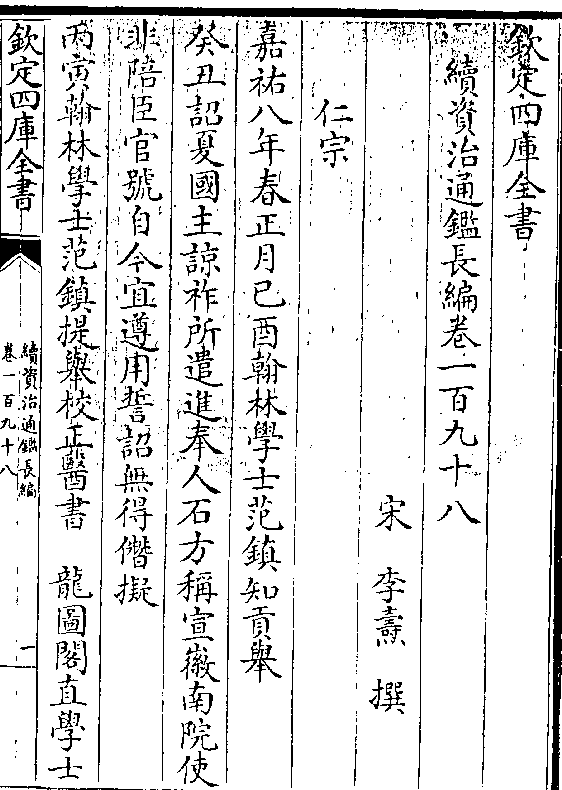 欽定四庫全書
續資治通鑑長編卷一百九十八
宋 李燾 撰
仁宗
嘉祐八年春正月己酉翰林學士范鎮知貢舉
癸丑詔夏國主諒祚所遣進奉人石方稱宣徽南院使
非陪臣官號自今宜遵用誓詔無得僭擬
丙寅翰林學士范鎮提舉校正醫書 龍圖閣直學士
欽定四庫全書
續資治通鑑長編
卷一百九十八
一